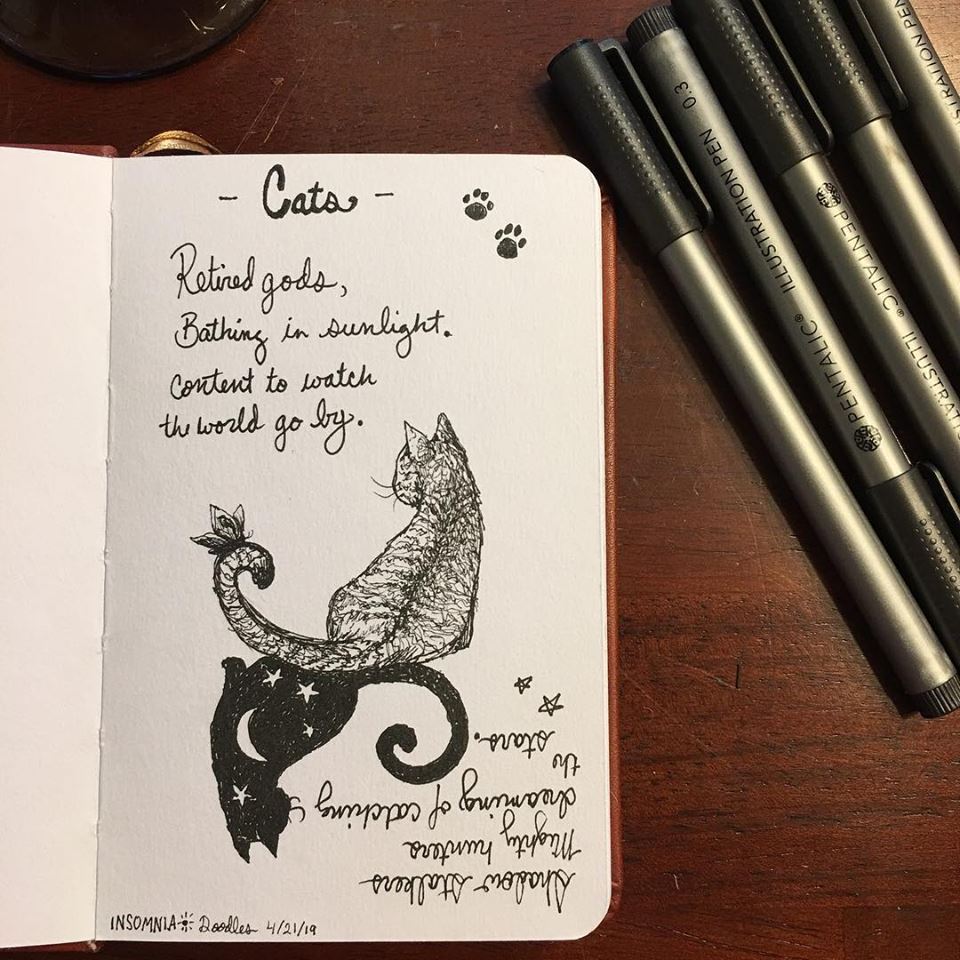 - Cats -
Retired gods,
Bathing in sunlight.
content to watch
the world go by.
Shadow Stalkers
Mighty hunters
dreaming of catching
the stars.
INSOMNIA Doodles 4/21/19
0.3 ILLUSTRATION PEN PENTALIC®
PENTALIC® ILLUSTRAT
STRATION PEN